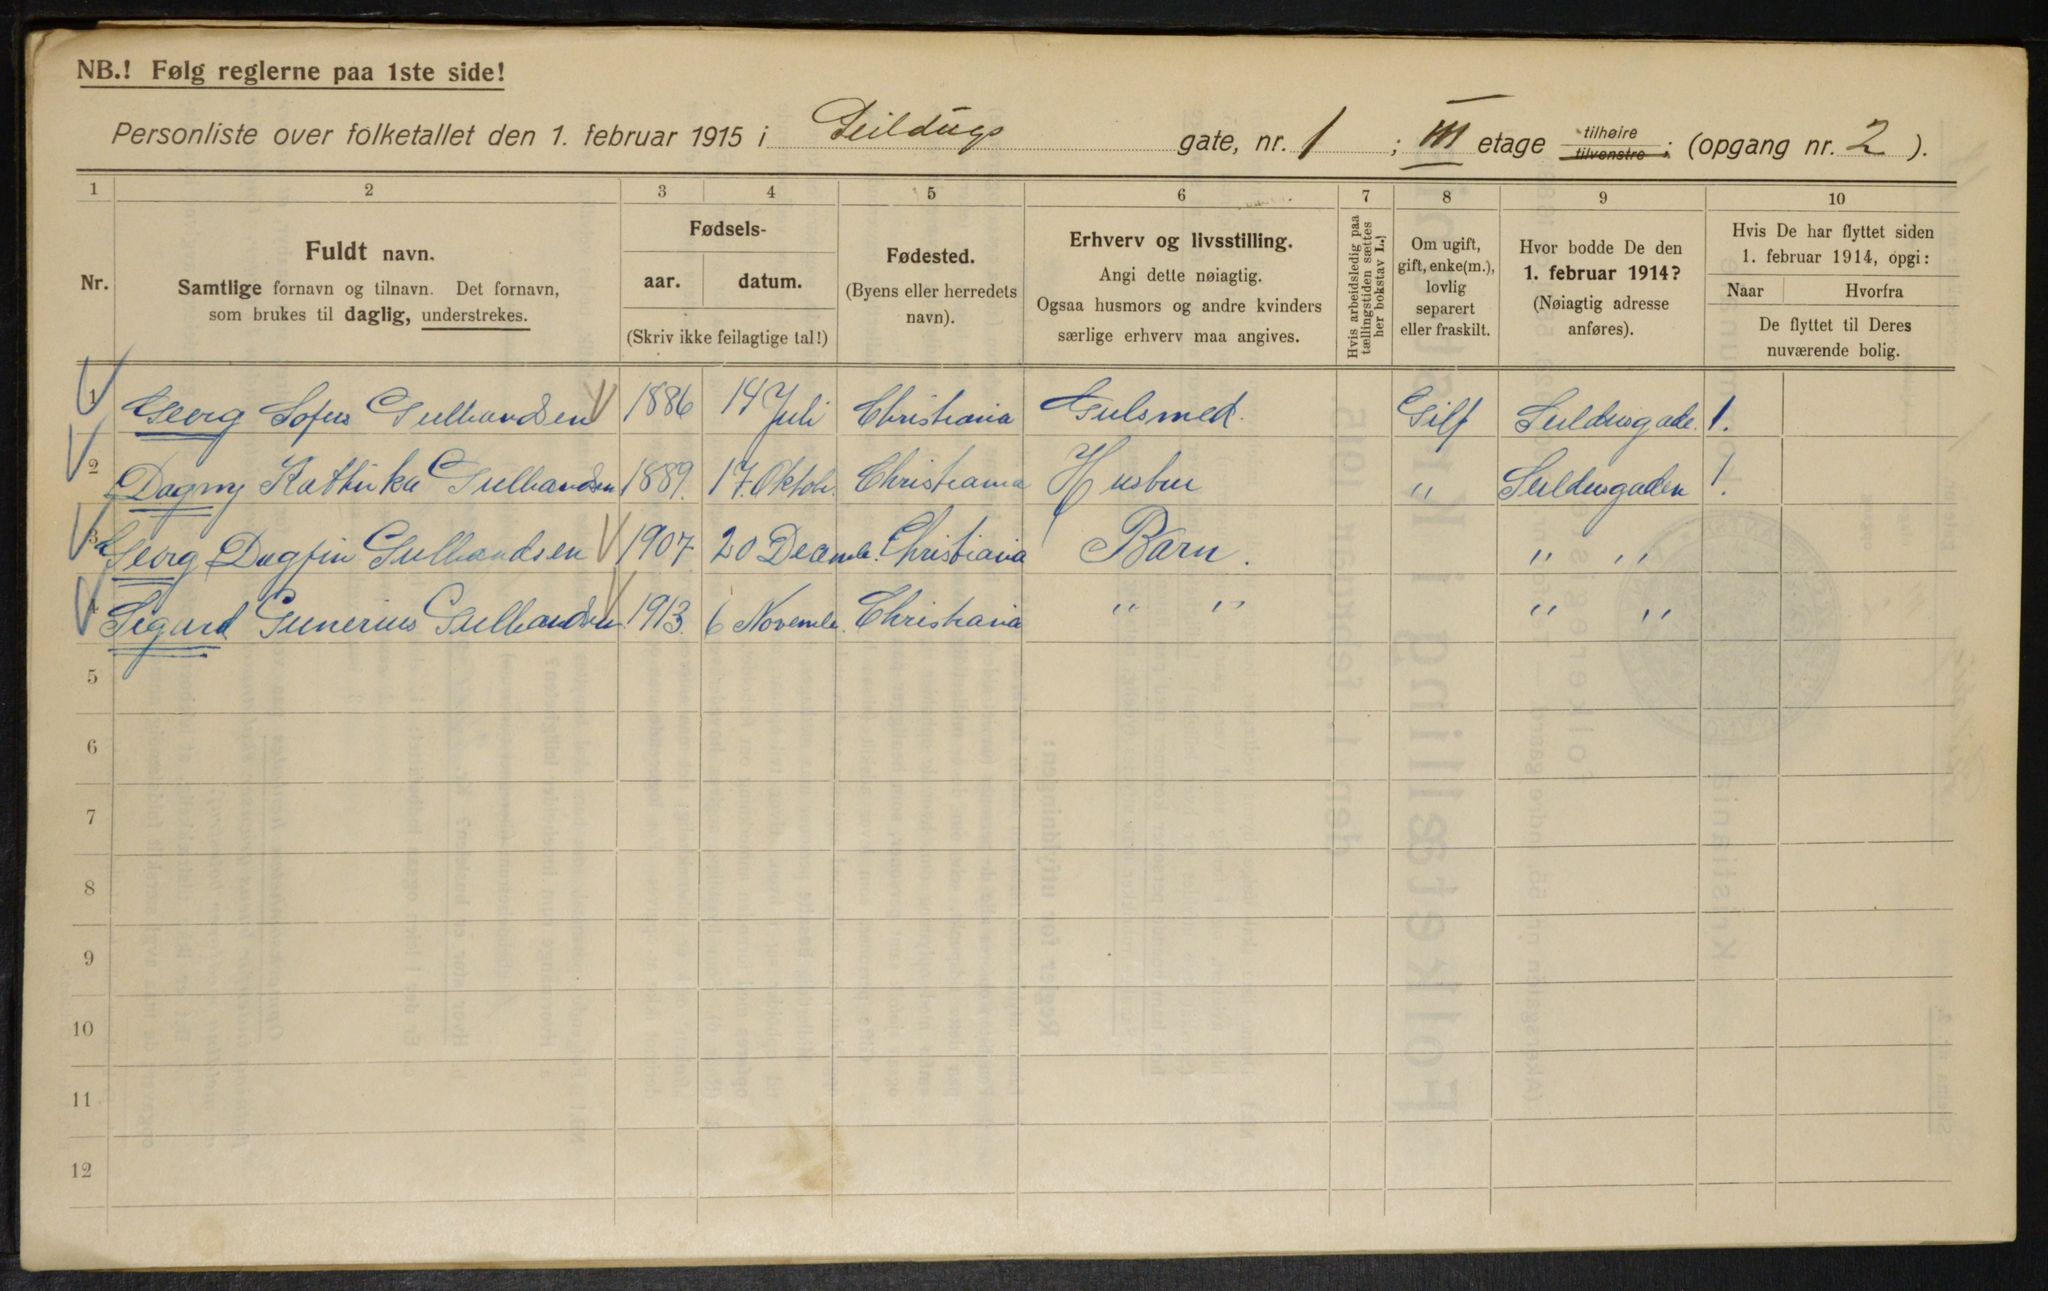 NB.! Følg reglerne paa 1ste side!
Personliste over folketallet den 1. februar 1915 i Seildugs gate, nr. 1 ; III etage tilhøire tilvenstre ; (opgang nr. 2 ).
1 2 3 4 5 6 7 8 9 10
Nr.
Fuldt navn.
Samtlige fornavn og tilnavn. Det fornavn,
som brukes til daglig, understrekes.
Fødsels-
aar. datum.
(Skriv ikke feilagtige tal!)
Fødested.
(Byens eller herredets
navn).
Erhverv og livsstilling.
Angi dette nøiagtig.
Ogsaa husmors og andre kvinders
særlige erhverv maa angives.
Hvis arbeidsledig paa
tællingstiden sættes
her bokstav L.)
Om ugift,
gift, enke(m.),
lovlig
separert
eller fraskilt.
Hvor bodde De den
1. februar 1914?
(Nøiagtig adresse
anføres).
Hvis De har flyttet siden
1. februar 1914, opgi:
Naar Hvorfra
De flyttet til Deres
nuværende bolig.
1 Georg Sofus Gulbrandsen 1886 14 Juli Christiania Gulsmed. Gift Seildusgade. 1.
2 Dagny Kathinka Gulbrandsen 1889. 17 Oktob. Christiania Husbru " Seildusgaden 1.
3 Georg Dagfin Gulbrandsen 1907. 20 Decemb. Christiania Barn. " "
4 Sigurd Gunerius Gulbrandsen 1913. 6 Novemb. Christiania " " " "
5
6
7
8
9
10
11
12